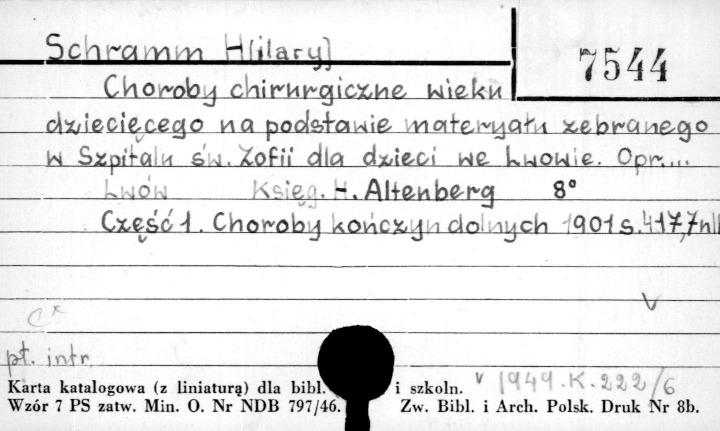 Schramm H[ilary]
7544
Choroby chirurgiczne wieku
dziecięcego na podstawie materyału zebranego
w Szpitalu św. Zofii dla dzieci we Lwowie. Opr....
Lwów Księg. H. Altenberg 8°
Część 1. Choroby kończyn dolnych 1901 s. 417,7nll
v
C*
pt. intr.
Karta katalogowa (z liniaturą) dla bibl. i szkoln. v 1949.K.222/6
Wzór 7 PS zatw. Min. O. Nr NDB 797/46. Zw. Bibl. i Arch. Polsk. Druk Nr 8b.